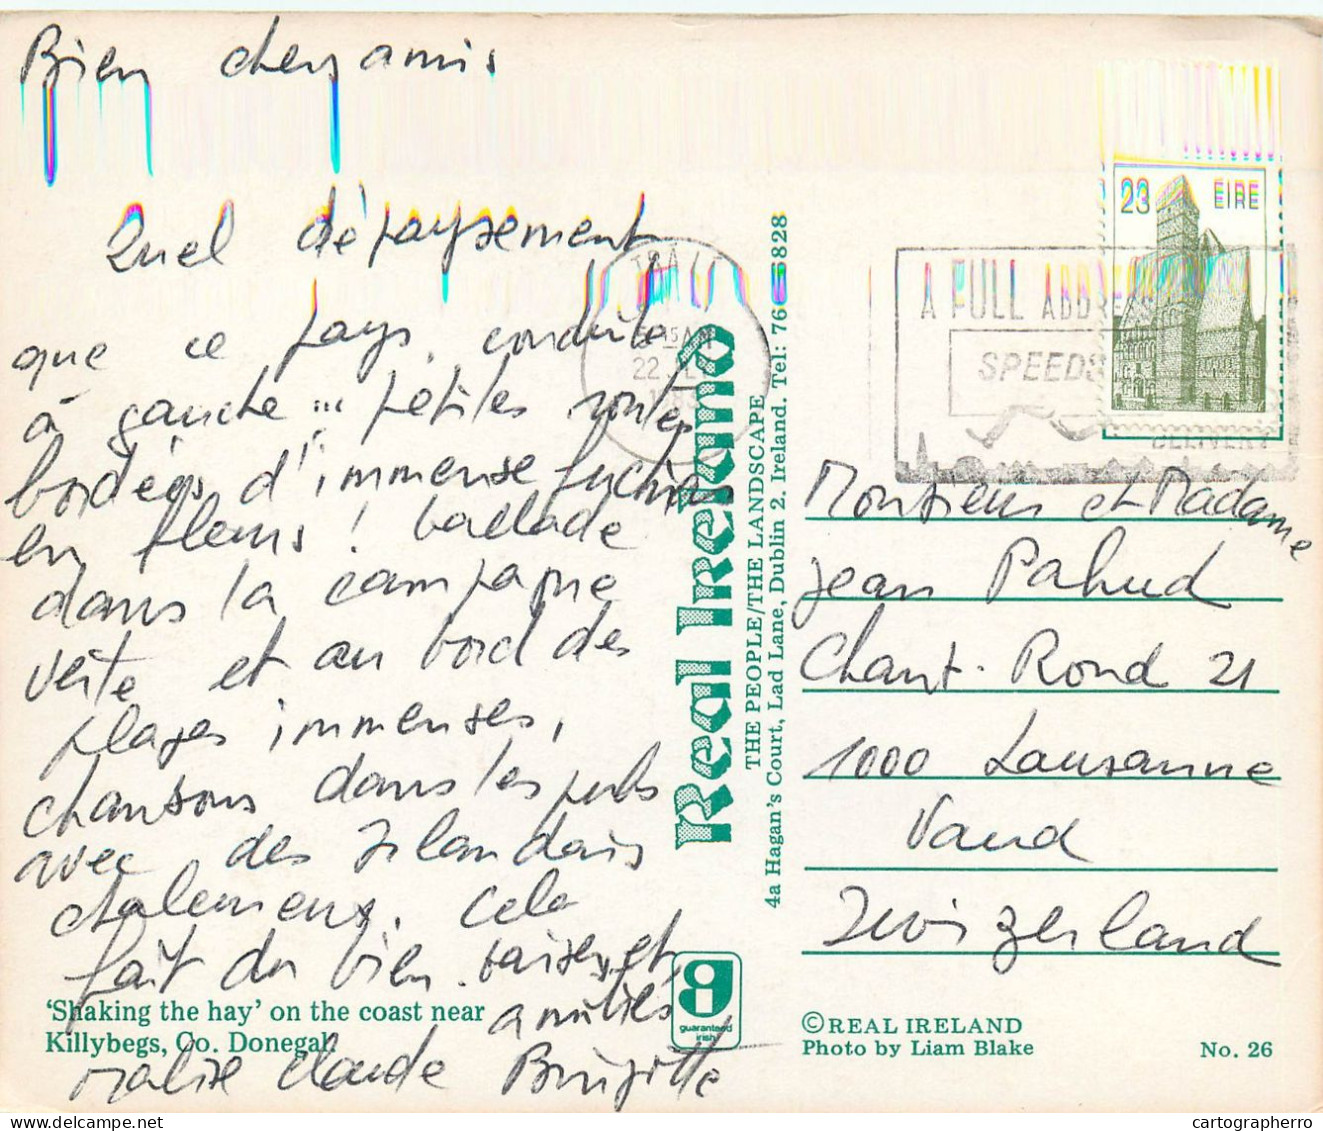 Bien chers amis
Quel dépaysement
que ce pays, conduite
à gauche... petites routes
bordées d'immense fuchsias
en fleurs ! ballade
dans la campagne
verte et au bord des
plages immenses,
chansons dans les pubs
avec des Irlandais
chaleureux. Cela
fait du bien. Baisers et
amitiés
Claude Brigitte
'Shaking the hay' on the coast near
Killybegs, Co. Donegal
Real Ireland
THE PEOPLE/THE LANDSCAPE
4a Hagan's Court, Lad Lane, Dublin 2. Ireland. Tel: 76 6828
guaranteed
irish
23 EIRE
A FULL ADDRE
SPEEDS
DELIVERY
Monsieur et Madame
Jean Pahud
Chant. Rond 21
1000 Lausanne
Vaud
Switzerland
© REAL IRELAND
Photo by Liam Blake
No. 26
cartographerro